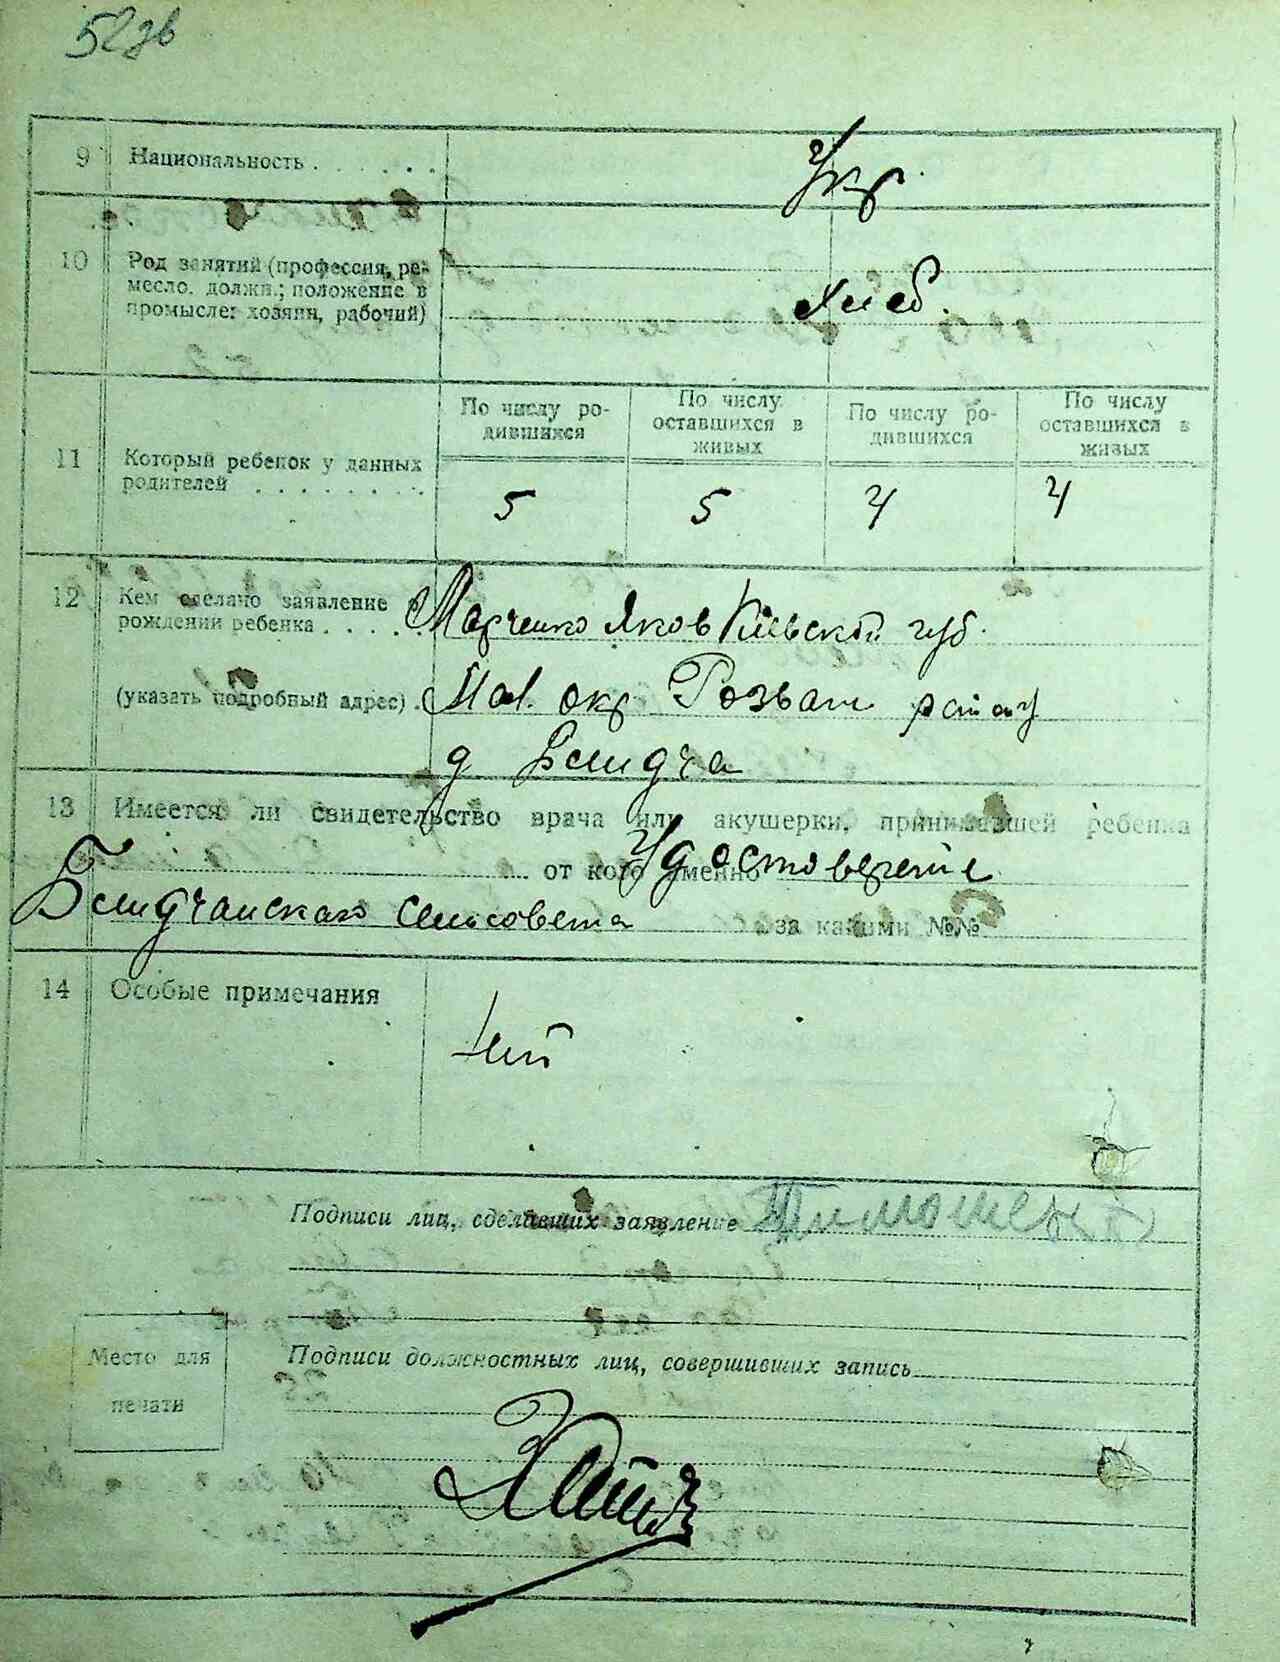 52зв
9 Национальность . . . . . . .
Укр
10 Род занятий (профессия, ре-
месло. должн.; положение в
промысле: хозяин, рабочий)
хлеб.
11 Который ребенок у данных
родителей . . . . . . . . .
По числу ро-
дившихся
По числу
оставшихся в
живых
По числу ро-
дившихся
По числу
оставшихся в
живых
5 5 4 4
12 Кем сделано заявление о
рождении ребенка . . . . .
Марченко Яков Киевской губ.
(указать подробный адрес) .
Мал. окр Розваж
д
13 Имеется ли свидетельство врача или акушерки, принимавшей ребенка
от кого именно
Удостоверение
сельсовета за какими №№
14 Особые примечания
нет
Подписи лиц, сделавших заявление
Место для
печати
Подписи должностных лиц, совершивших запись